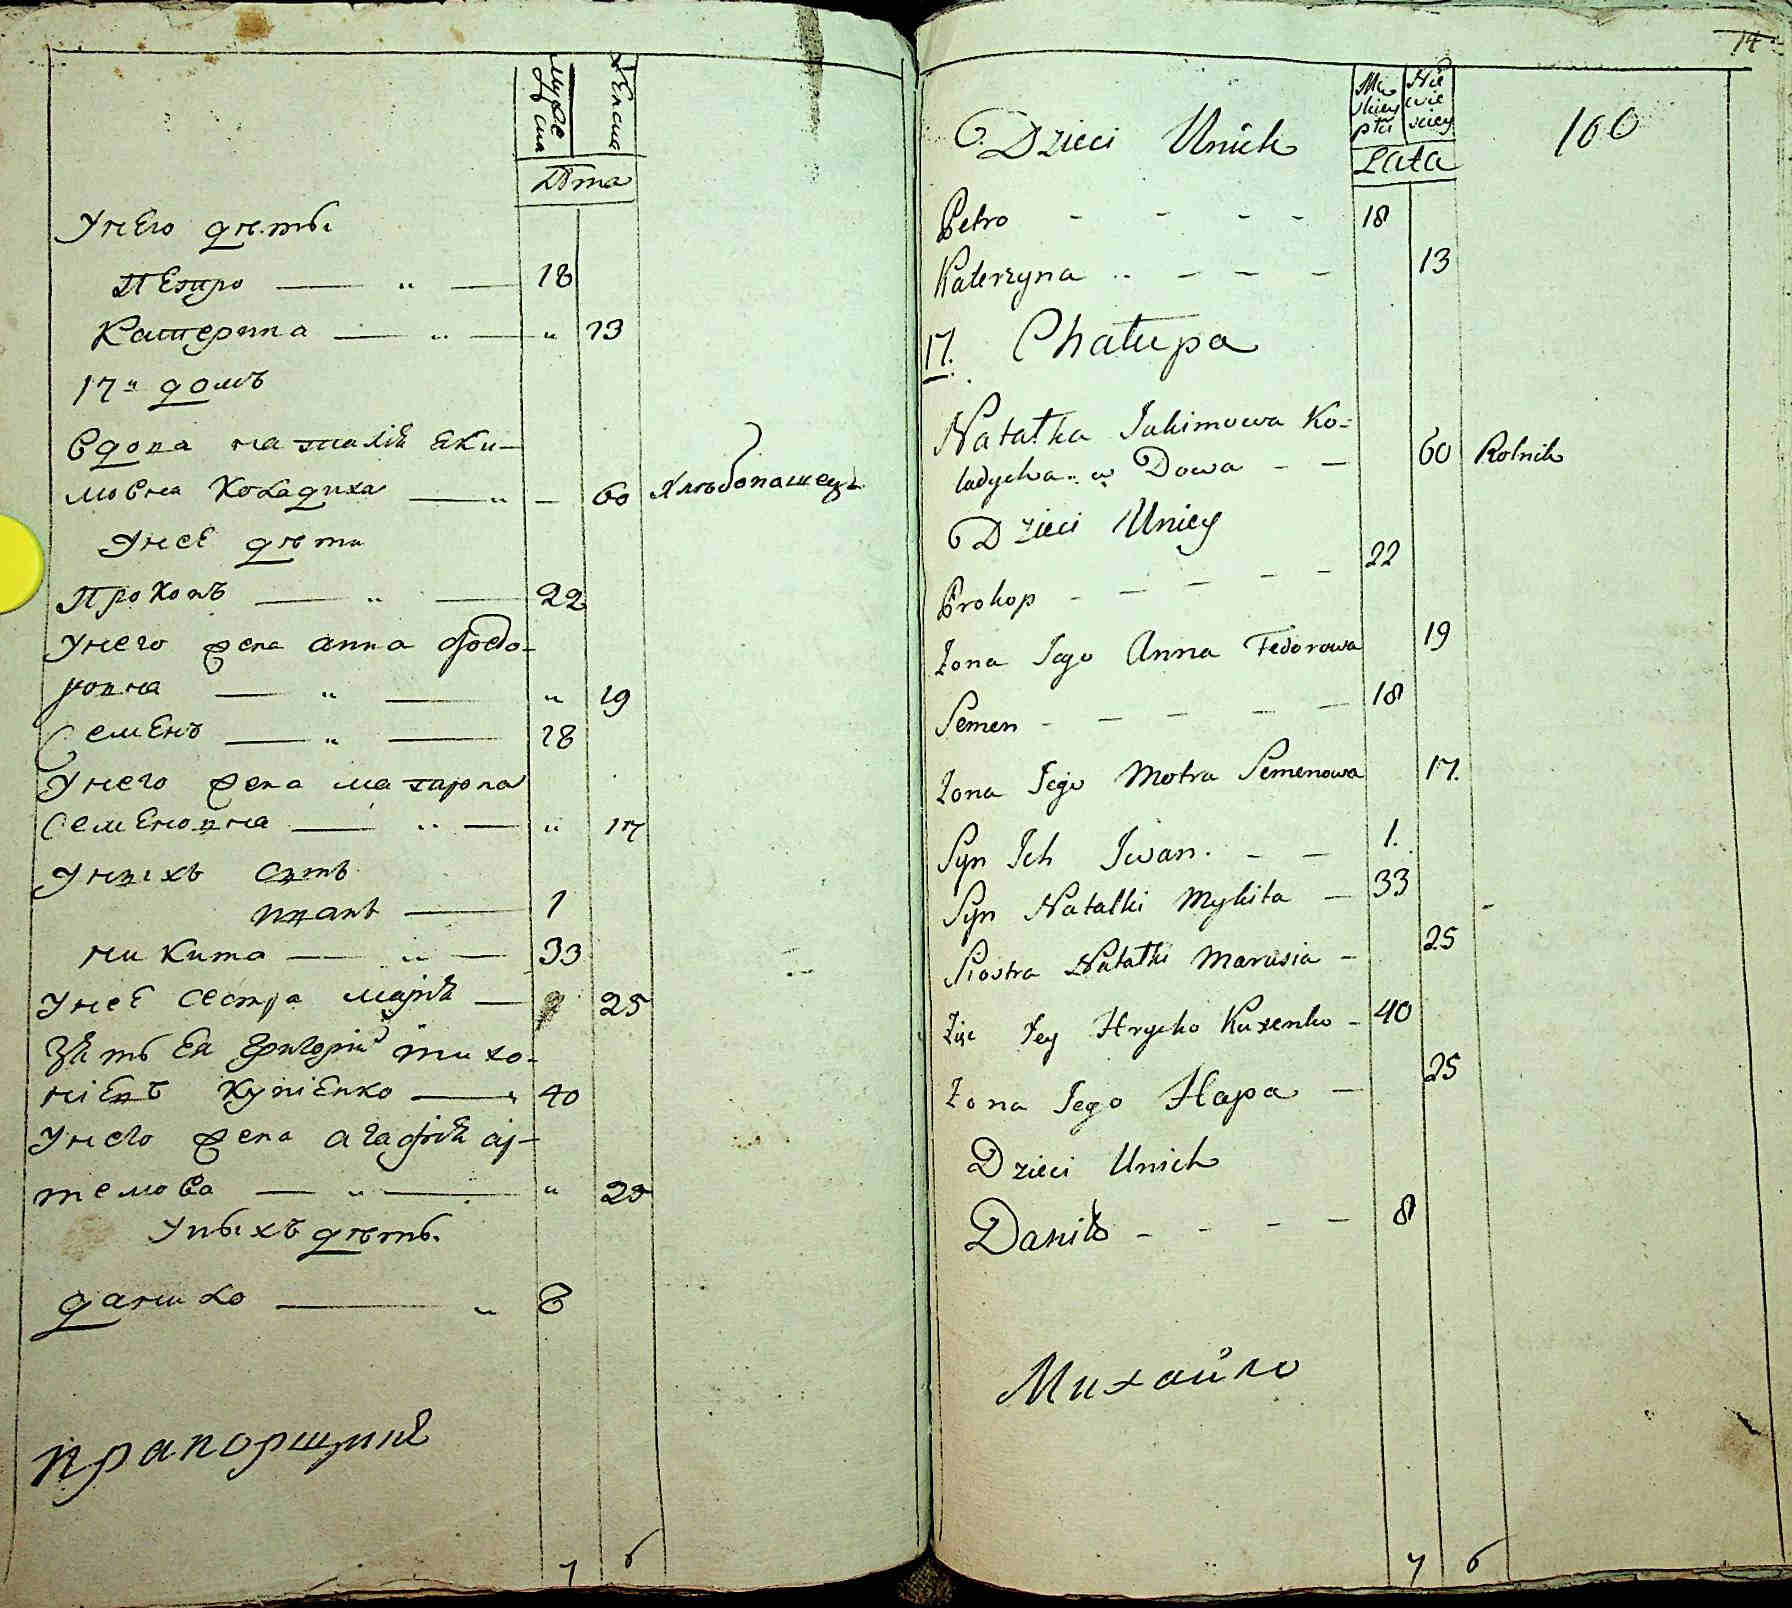 Мужеска
Женска
Лѣта
У него дѣты
Петро 18
Катерина 13
17й домъ
Вдова Наталія Яки-
мовна Коладиха 60 Хлѣбопашец
У неё дѣти
Прокопъ 22
У него жена Анна Федо-
ровна 19
Семенъ 18
У него жена Матрона
Семеновна 17
У ныхъ сынъ
Иванъ 1
Никита 33
У неё сестра Марія 25
Зять Ея Григорій Тихо-
ніевъ Купіенко 40
У него жена Агафія Ар-
темова 25
У ныхъ дѣты
Данило 8
прапорщикъ
7 6
14
Dzieci Unich
Męskiey płci
Niewieściey
Lata
160
Petro 18
Katerzyna 13
17. Chałupa
Natałka Jakimowa Ko=
ladycha wDowa 60 Rolnik
Dzieci Uniey
Prokop 22
Żona Jego Anna Fedorowa 19
Semen 18
Żona Jego Motra Semenowa 17.
Syn Ich Iwan. 1.
Syn Natałki Mykita 33
Siostra Natałki Marusia 25
Zięć Jey Hrycko 40
Żona Jego Hapa 25
Dzieci Unich
Daniło 8
Михайло
7 6